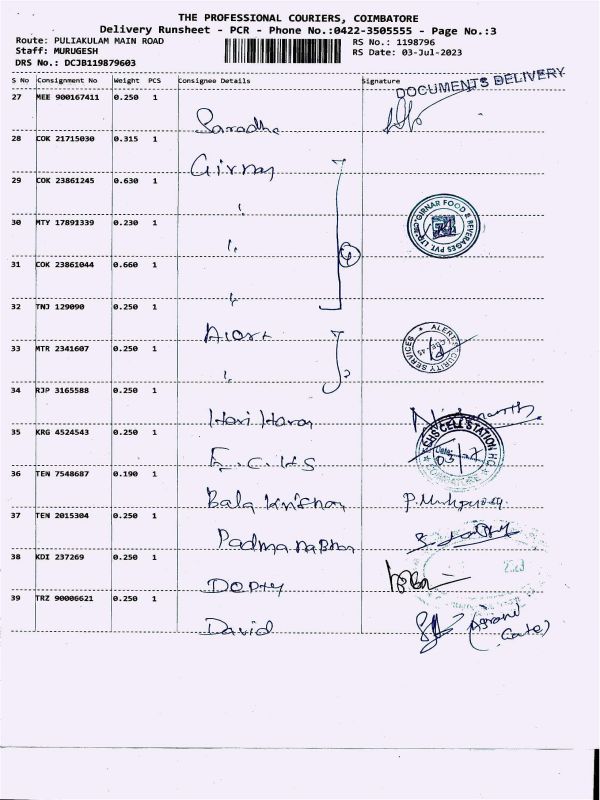 THE PROFESSIONAL COURIERS, COIMBATORE
Delivery Runsheet - PCR - Phone No.:0422-3505555 - Page No.:3
Route: PULIAKULAM MAIN ROAD RS No.: 1198796
Staff: MURUGESH RS Date: 03-Jul-2023
DRS No.: DCJB119879603
S No Consignment No Weight PCS Consignee Details Signature
DOCUMENTS DELIVERY
27 MEE 900167411 0.250 1
Saradha
28 COK 21715030 0.315 1
Girnar
29 COK 23861245 0.630 1
"
30 MTY 17891339 0.230 1
GIRNAR FOOD & BEVERAGES PVT. LTD.
" 4
31 COK 23861044 0.660 1
"
32 TNJ 129090 0.250 1
Alert
ALERT SECURITY SERVICES
CBE-45
33 MTR 2341607 0.250 1
" 2
34 RJP 3165588 0.250 1
Hari Haran
35 KRG 4524543 0.250 1
ECHS CELL STATION HQ
Date: 03/7
E.C.H.S
36 TEN 7548687 0.190 1
Bala Krishnan
37 TEN 2015304 0.250 1
Padmanabhan
38 KDI 237269 0.250 1
Depty
39 TRZ 90006621 0.250 1
David
Gate)